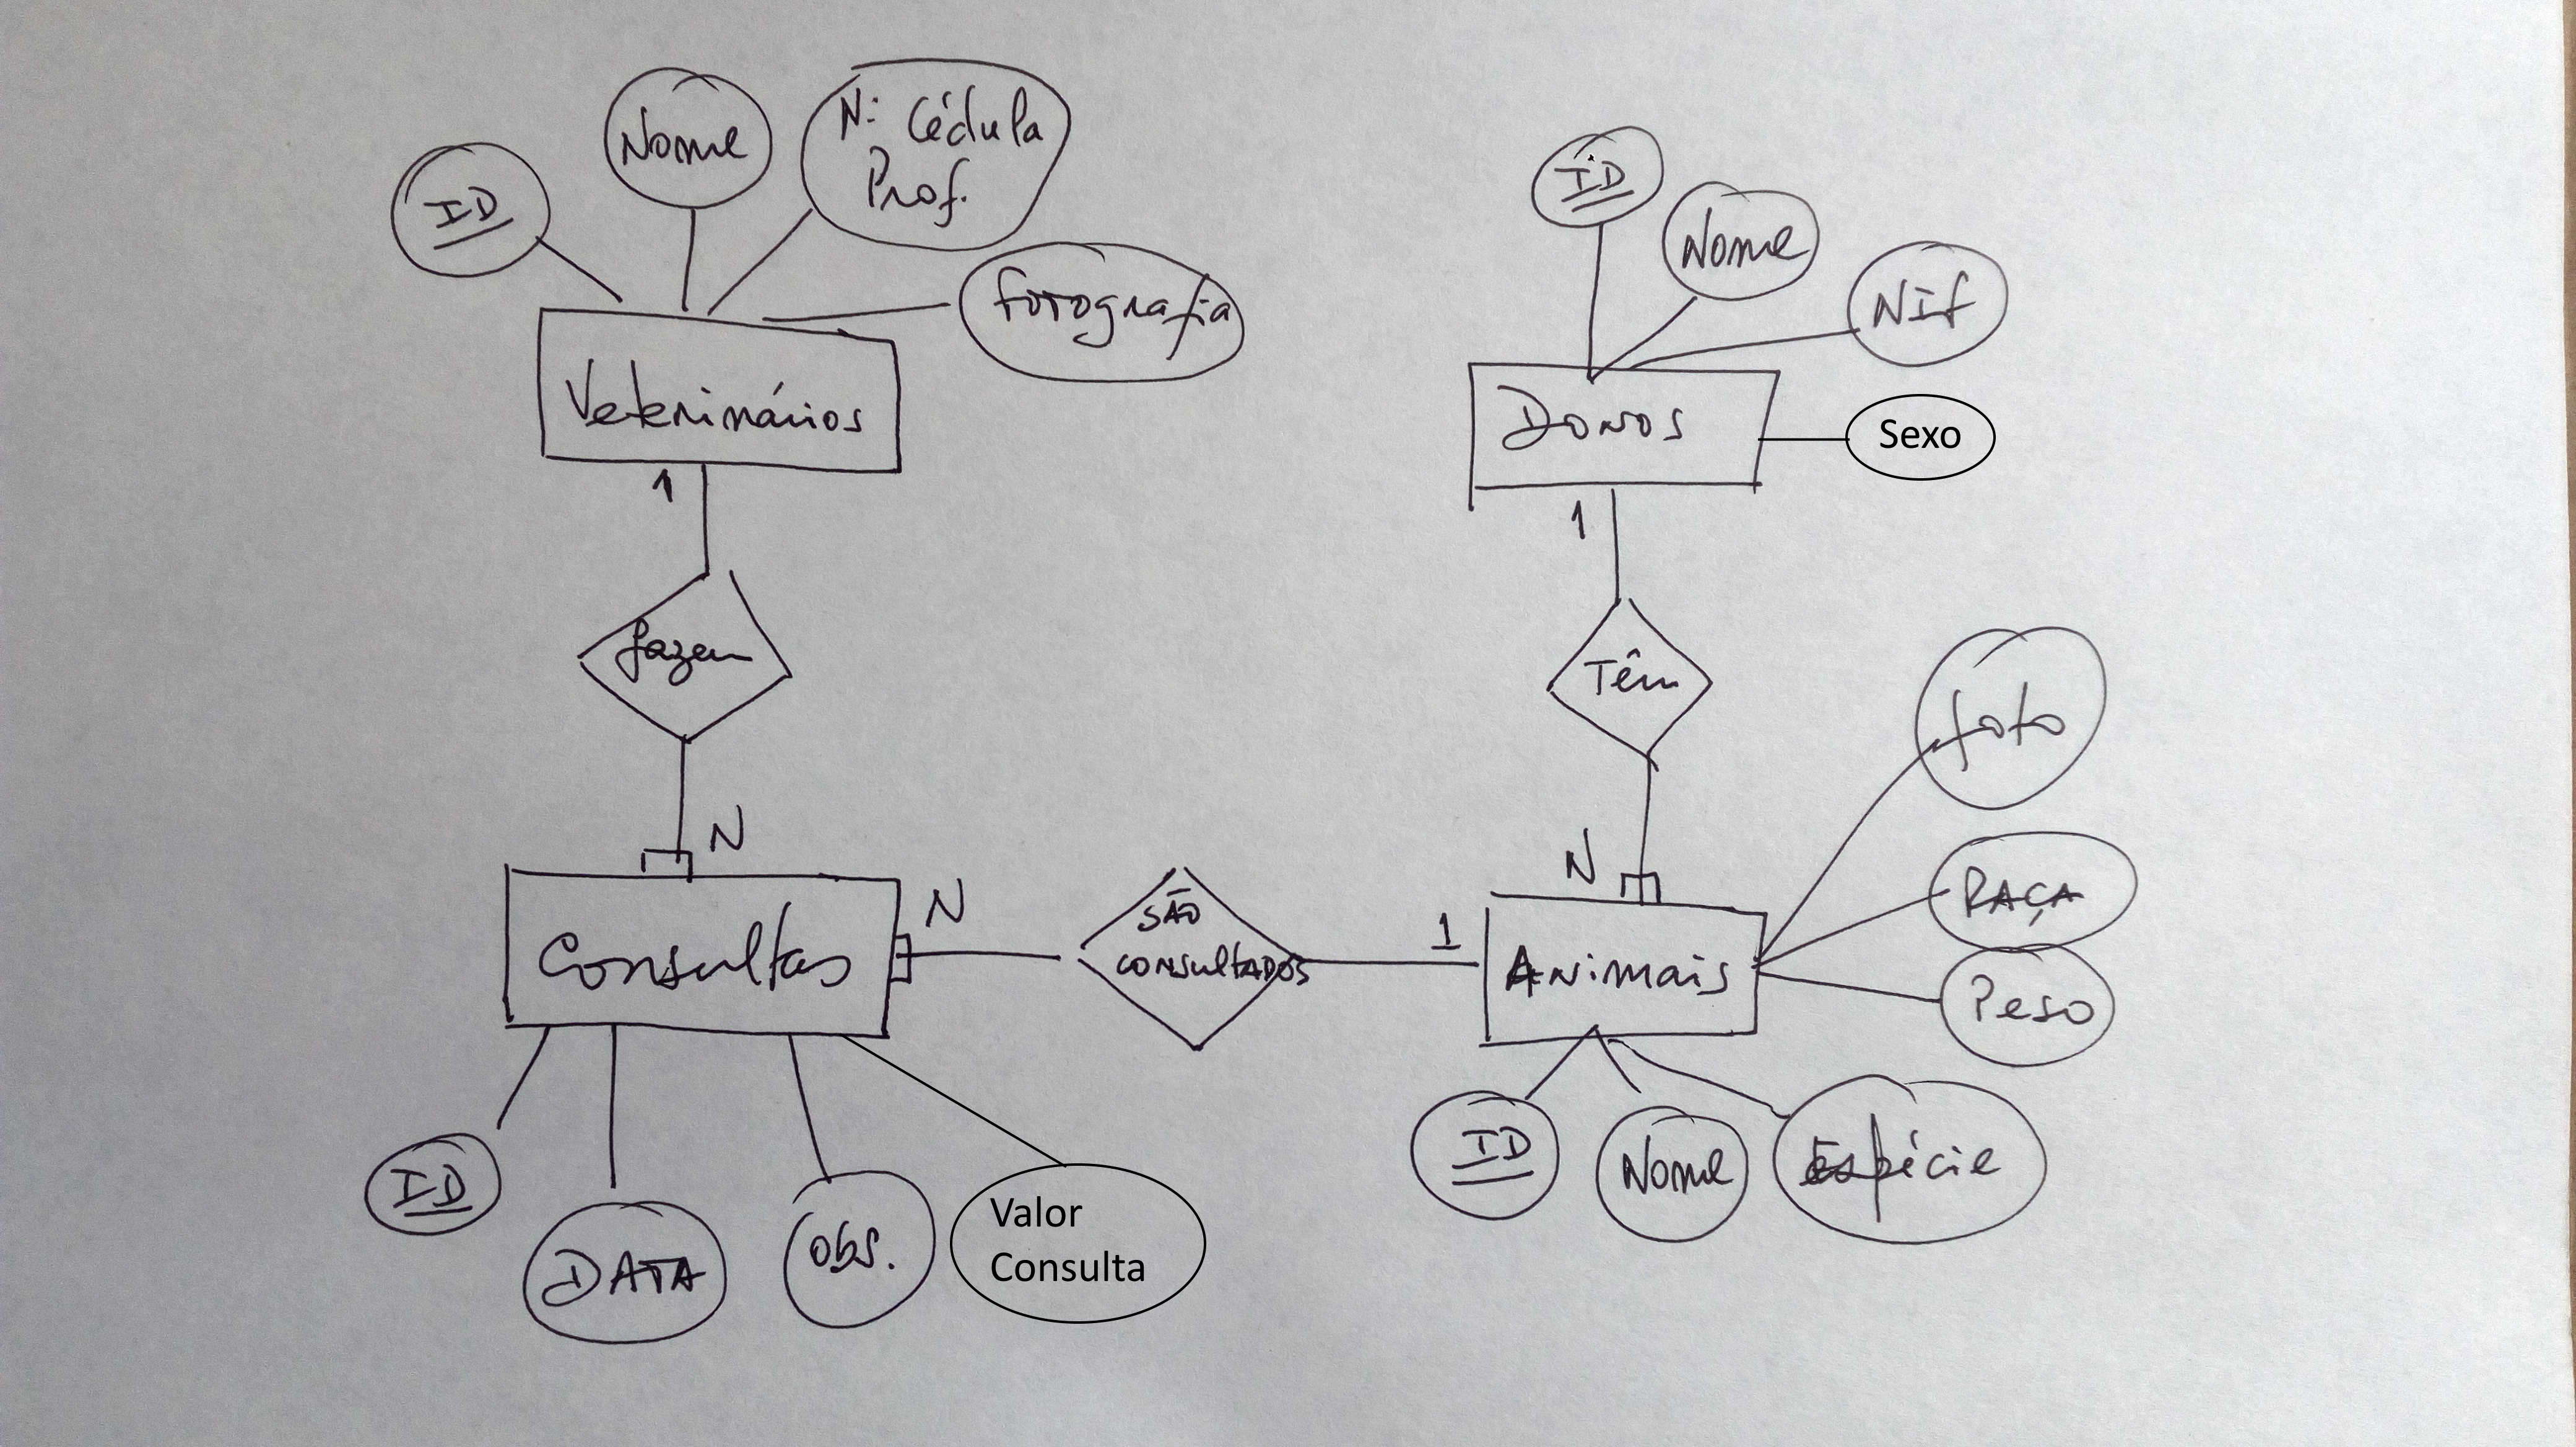 ID
Nome
Nº Cédula
Prof.
Fotografia
Veterinários
1
fazem
N
Consultas
N
SÃO
CONSULTADOS
1
ID
DATA
Obs.
Valor
Consulta
ID
Nome
NIF
Sexo
Donos
1
Têm
N
Animais
foto
RAÇA
Peso
ID
Nome
Espécie